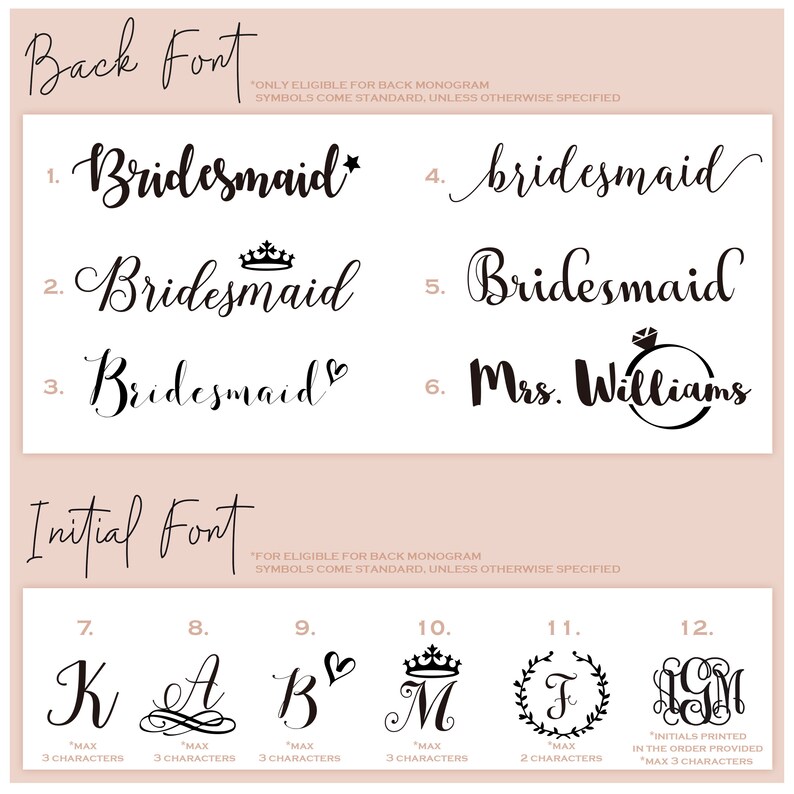 Back Font
*ONLY ELIGIBLE FOR BACK MONOGRAM
SYMBOLS COME STANDARD, UNLESS OTHERWISE SPECIFIED
1. Bridesmaid
2. Bridesmaid
3. Bridesmaid
4. bridesmaid
5. Bridesmaid
6. Mrs. Williams
Initial Font
*FOR ELIGIBLE FOR BACK MONOGRAM
SYMBOLS COME STANDARD, UNLESS OTHERWISE SPECIFIED
7.
K
*MAX
3 CHARACTERS
8.
A
*MAX
3 CHARACTERS
9.
B
*MAX
3 CHARACTERS
10.
M
*MAX
3 CHARACTERS
11.
F
*MAX
2 CHARACTERS
12.
AGM
*INITIALS PRINTED
IN THE ORDER PROVIDED
*MAX 3 CHARACTERS